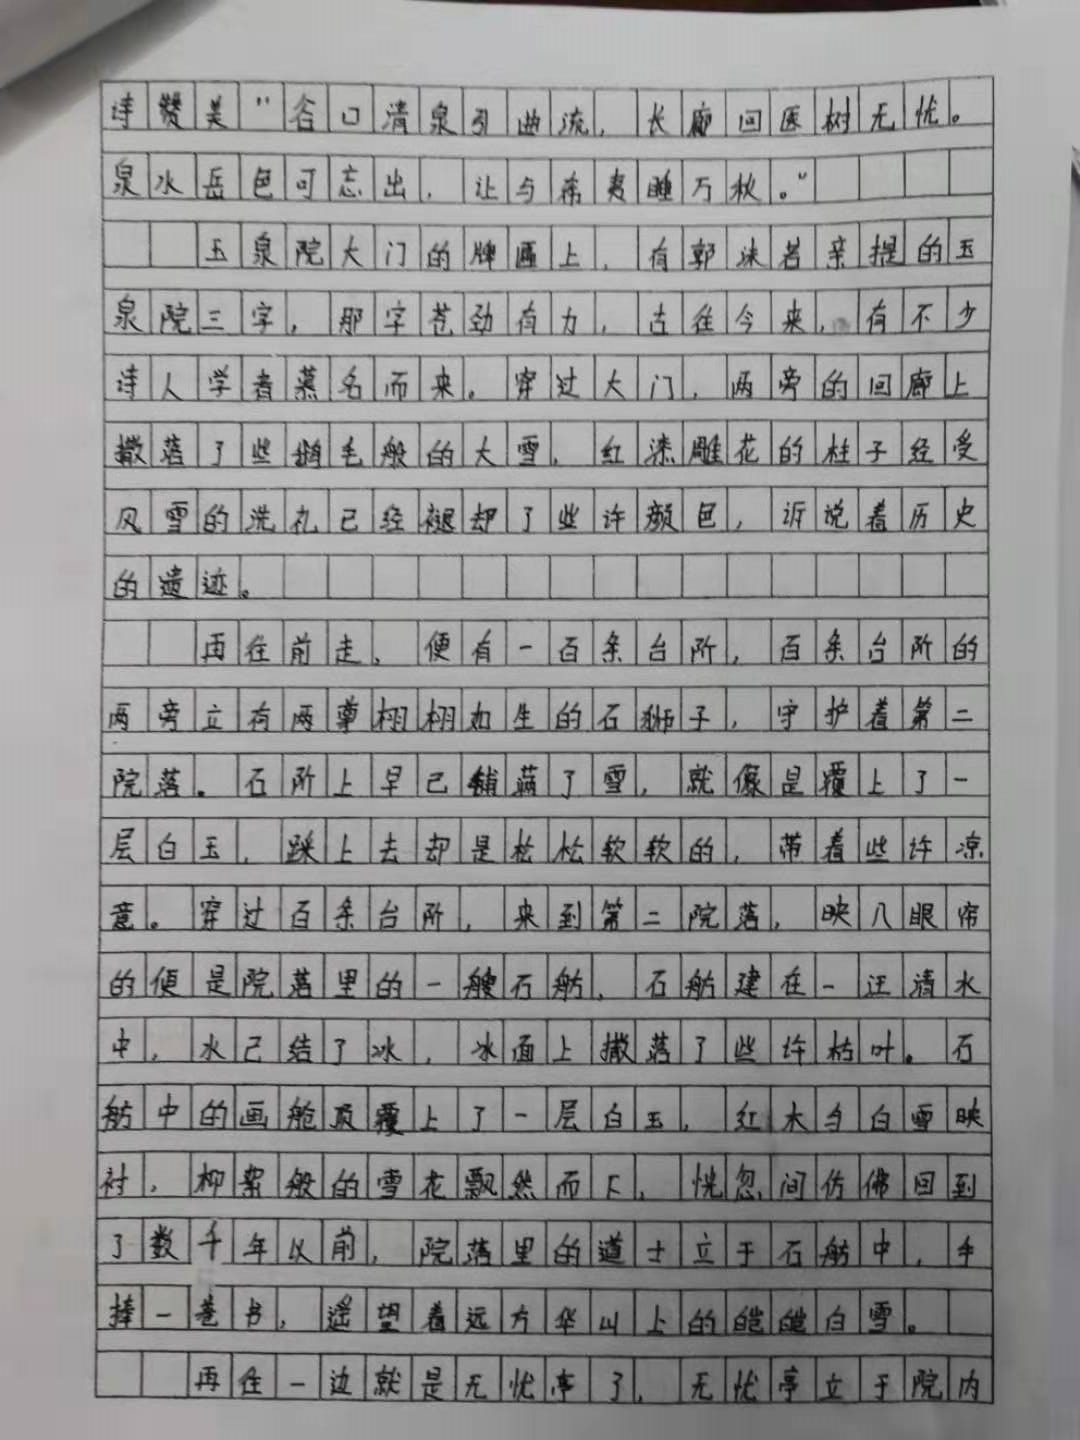 诗赞美"谷口清泉引曲流，长廊回医树无忧。
泉水岳色可忘出，让与希夷睡万秋。"
玉泉院大门的牌匾上，有郭沫若亲提的玉
泉院三字，那字苍劲有力，古往今来，有不少
诗人学者慕名而来。穿过大门，两旁的回廊上
撒落了些鹅毛般的大雪，红漆雕花的柱子经受
风雪的洗礼已经褪却了些许颜色，诉说着历史
的遗迹。
再往前走，便有一百条台阶，百条台阶的
两旁立有两尊栩栩如生的石狮子，守护着第二
院落。石阶上早已铺满了雪，就像是覆上了一
层白玉，踩上去却是松松软软的，带着些许凉
意。穿过百条台阶，来到第二院落，映入眼帘
的便是院落里的一艘石舫，石舫建在一汪清水
中，水已结了冰，冰面上撒落了些许枯叶。石
舫中的画舱顶覆上了一层白玉，红木与白雪映
衬，柳絮般的雪花飘然而下，恍忽间仿佛回到
了数千年以前，院落里的道士立于石舫中，手
捧一卷书，遥望着远方华山上的皑皑白雪。
再往一边就是无忧亭了，无忧亭立于院内